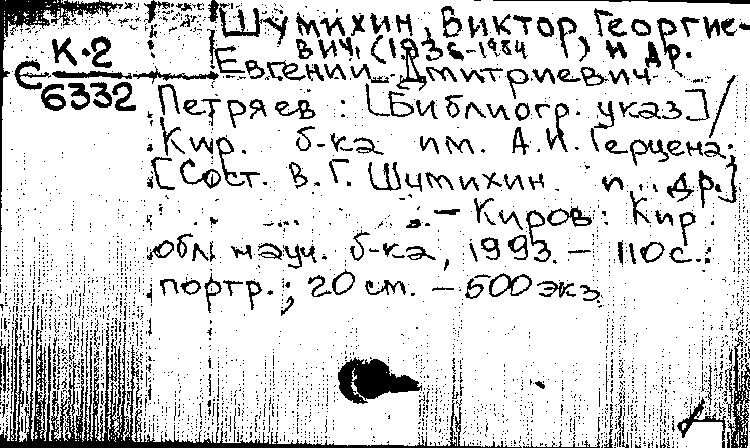 Шумихин, Виктор Георгие-
вич, (1936-1984) и др.
К.2
С
6332
Евгений Дмитриевич
Петряев : [Библиогр. указ] /
Кир. б-ка им. А.И. Герцена;
[Сост. В.Г. Шумихин и др.]
.— Киров: Кир.
обл. науч. б-ка, 1993. — 110 с.:
портр.; 20 см. — 500 экз.